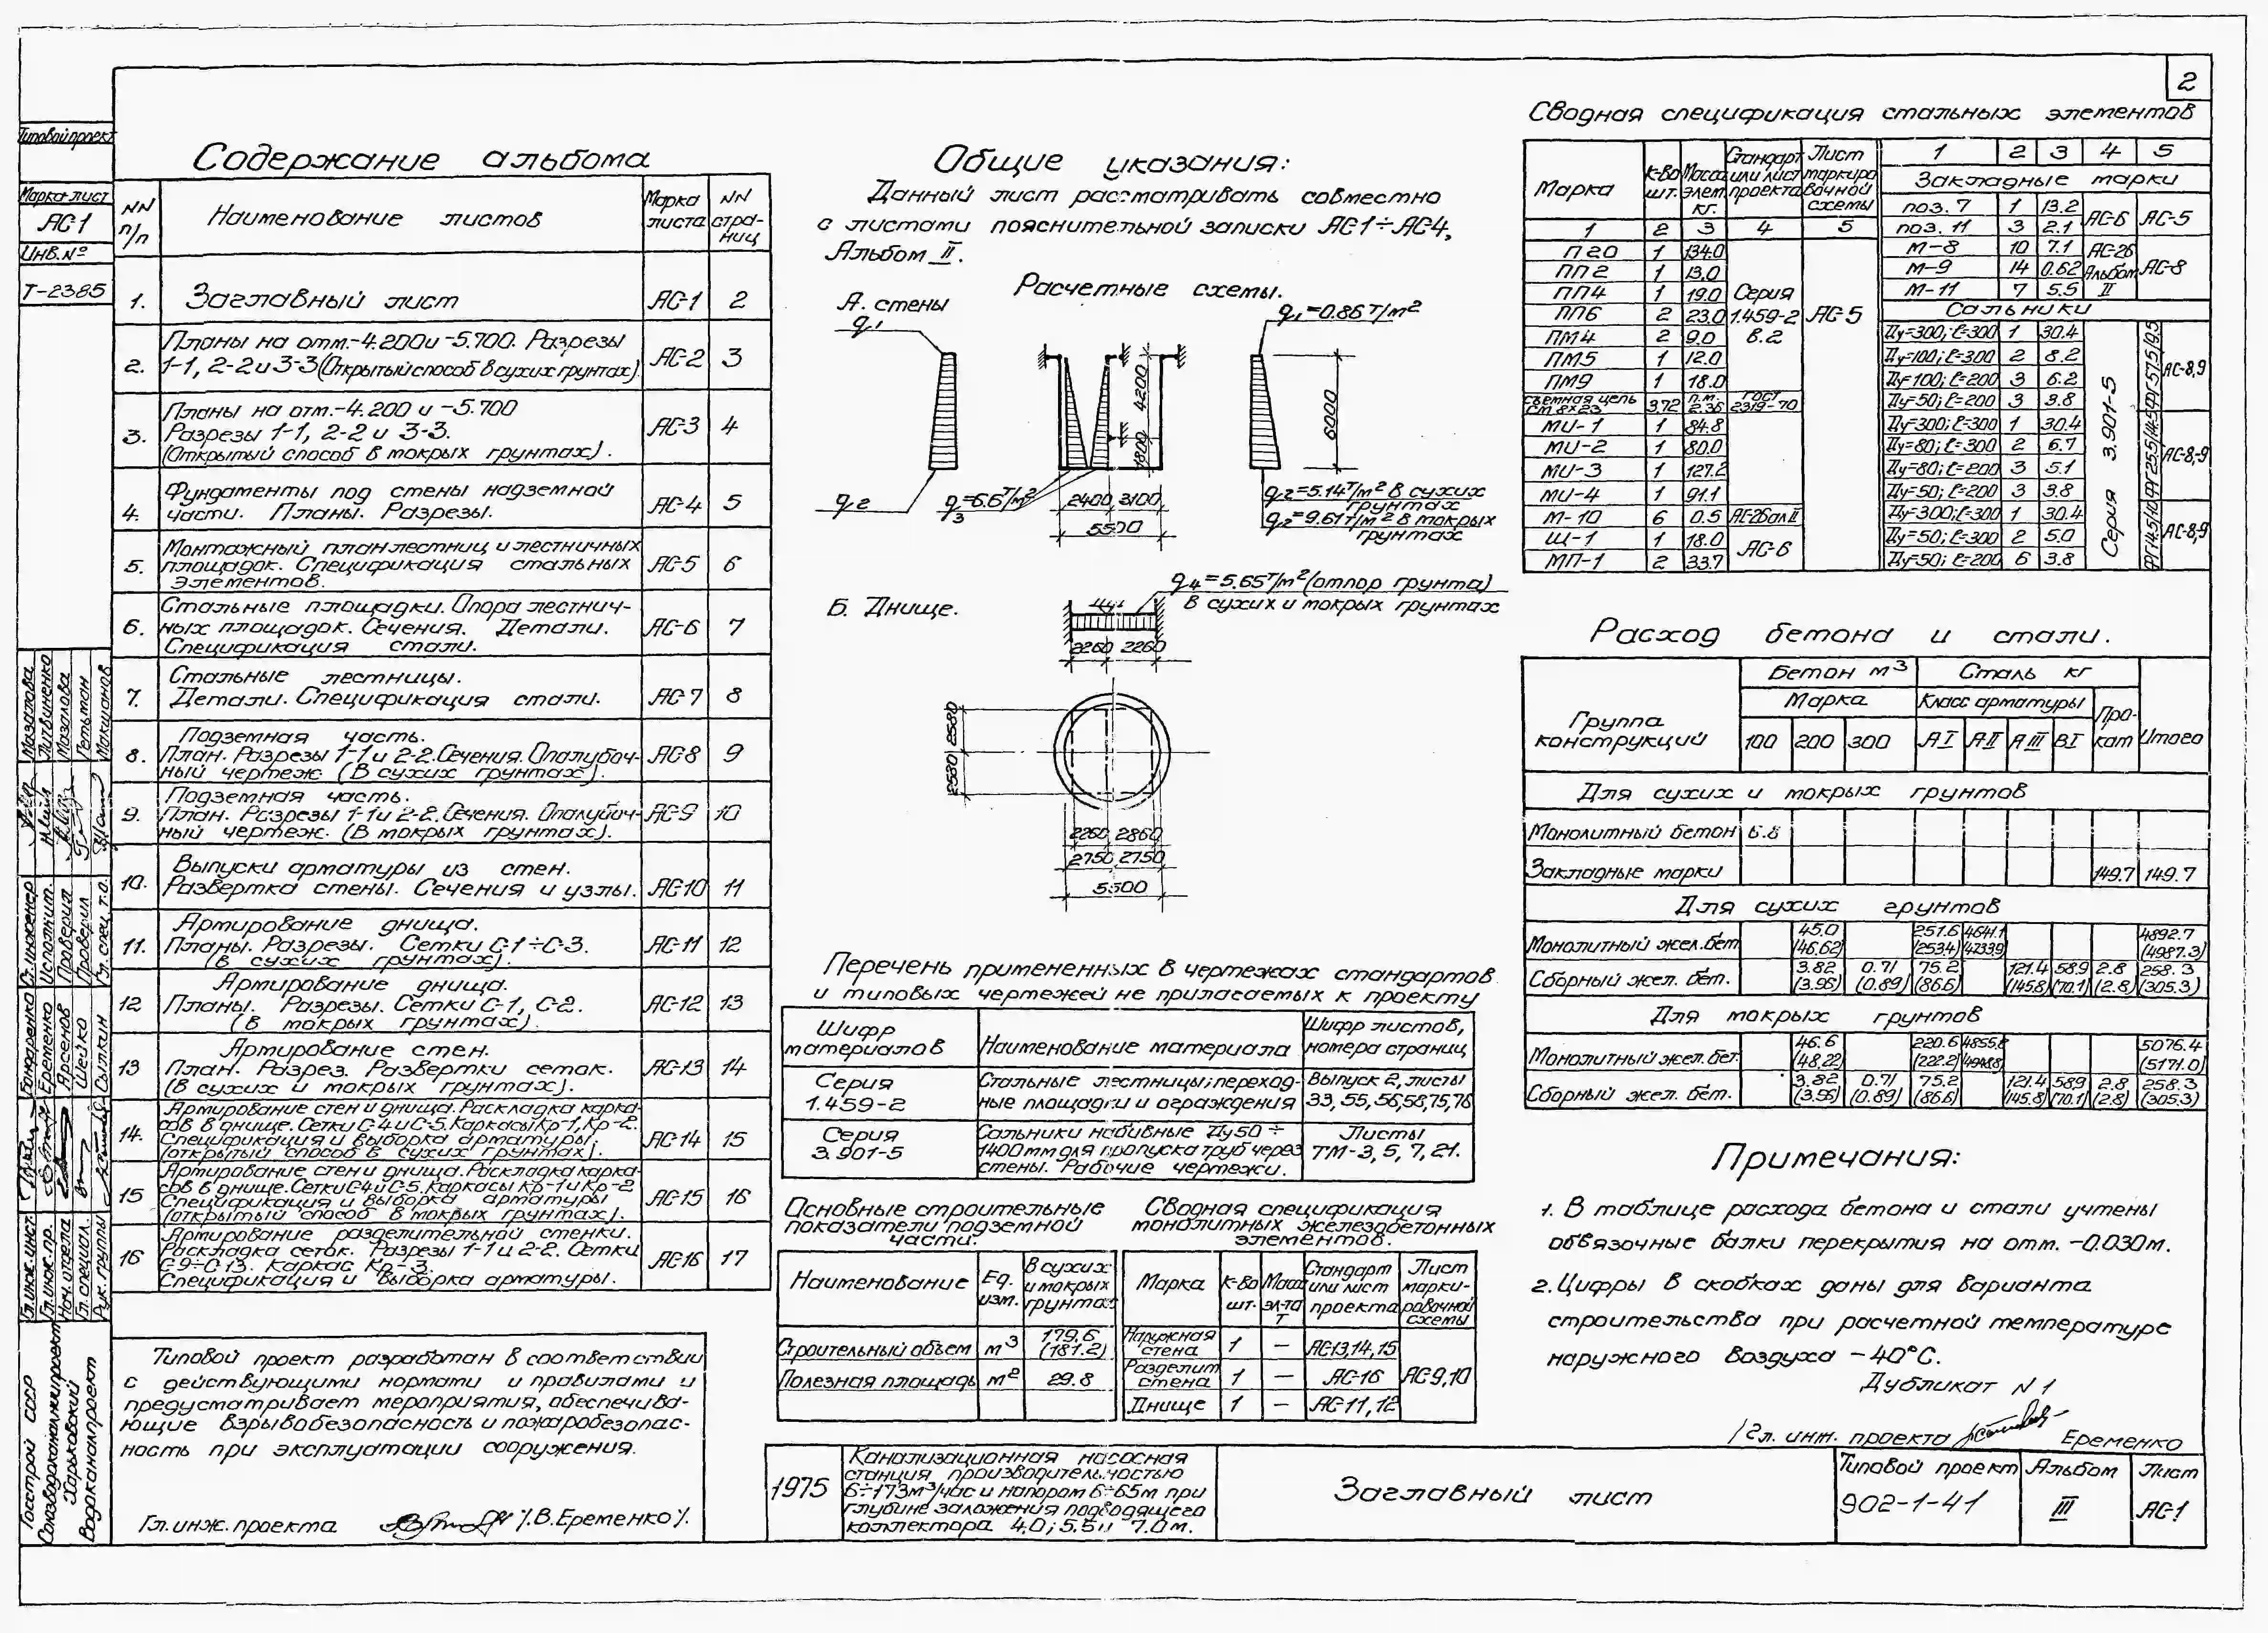 2
Типовой проект
Марка-лист
АС-1
Инв. №
Т-2385
Содержание альбома
NN п/п
Наименование листов
Марка листа
NN страниц
1. Заглавный лист АС-1 2
2. Планы на отм.-4.200 и -5.700. Разрезы
1-1, 2-2 и 3-3 (Открытый способ в сухих грунтах). АС-2 3
3. Планы на отм.-4.200 и -5.700
Разрезы 1-1, 2-2 и 3-3.
(Открытый способ в мокрых грунтах). АС-3 4
4. Фундаменты под стены надземной
части. Планы. Разрезы. АС-4 5
5. Монтажный план лестниц и лестничных
площадок. Спецификация стальных
элементов. АС-5 6
6. Стальные площадки. Опора лестнич-
ных площадок. Сечения. Детали.
Спецификация стали. АС-6 7
7. Стальные лестницы.
Детали. Спецификация стали. АС-7 8
8. Подземная часть.
План. Разрезы 1-1 и 2-2. Сечения. Опалубоч-
ный чертеж (В сухих грунтах). АС-8 9
9. Подземная часть.
План. Разрезы 1-1 и 2-2. Сечения. Опалубоч-
ный чертеж. (В мокрых грунтах). АС-9 10
10. Выпуски арматуры из стен.
Развертка стены. Сечения и узлы. АС-10 11
11. Армирование днища.
Планы. Разрезы. Сетки С-1÷С-3.
(В сухих грунтах). АС-11 12
12 Армирование днища.
Планы. Разрезы. Сетки С-1, С-2.
(В мокрых грунтах). АС-12 13
13 Армирование стен.
План. Разрез. Развертки сеток.
(В сухих и мокрых грунтах). АС-13 14
14. Армирование стен и днища. Раскладка карка-
сов в днище. Сетки С-4 и С-5. Каркасы Кр-1, Кр-2.
Спецификация и выборка арматуры.
(открытый способ в сухих грунтах). АС-14 15
15 Армирование стен и днища. Раскладка карка-
сов в днище. Сетки С-4 и С-5. Каркасы Кр-1 и Кр-2
Спецификация и выборка арматуры
(открытый способ в мокрых грунтах). АС-15 16
16 Армирование разделительной стенки.
Раскладка сеток. Разрезы 1-1 и 2-2. Сетки
С-9÷С-13. Каркас Кр-3.
Спецификация и выборка арматуры. АС-16 17
Типовой проект разработан в соответствии
с действующими нормами и правилами и
предусматривает мероприятия, обеспечива-
ющие взрывобезопасность и пожаробезопас-
ность при эксплуатации сооружения.
Гл. инж. проекта /.В. Еременко/.
Общие указания:
Данный лист рассматривать совместно
с листами пояснительной записки АС-1÷АС-4,
Альбом II.
Расчетные схемы.
А. стены
q1
q1=0.86 Т/м2
4200
1800
6000
q2
q3=6.6 Т/м2
2400 3100
5500
q2=5.14 Т/м2 в сухих
грунтах
q2=9.61 Т/м2 в мокрых
грунтах
Б. Днище.
q4=5.65 Т/м2 (отпор грунта)
в сухих и мокрых грунтах
2260 2260
2580
2580
2260 2860
2750 2750
5500
Перечень примененных в чертежах стандартов
и типовых чертежей не прилагаемых к проекту
Шифр материалов
Наименование материала
Шифр листов, номера страниц
Серия 1.459-2
Стальные лестницы; переход-
ные площадки и ограждения
Выпуск 2, листы
33, 55, 56, 58, 75, 76
Серия 3.901-5
Сальники набивные Ду50÷
1400 мм для пропуска труб через
стены. Рабочие чертежи.
Листы
ТМ-3, 5, 7, 21.
Основные строительные
показатели подземной
части.
Наименование
Ед. изм.
В сухих и мокрых грунтах
Строительный объем м3 179.6 (181.2)
Полезная площадь м2 29.8
Сводная спецификация
монолитных железобетонных
элементов.
Марка
К-во шт.
Масс эл-та т
Стандарт или лист проекта
Лист маркировочной схемы
Наружная стена 1 — АС-13,14,15
Разделит стена 1 — АС-16 АС-9,10
Днище 1 — АС-11,12
Сводная спецификация стальных элементов
Марка
К-во шт.
Масса элем. кг.
Стандарт или лист проекта
Лист маркировочной схемы
1 2 3 4 5
П20 1 134.0
ПП2 1 13.0
ПП4 1 19.0 Серия
ПП6 2 23.0 1.459-2 АС-5
ПМ4 2 9.0 в.2
ПМ5 1 12.0
ПМ9 1 18.0
съемная цепь СМ 8х23 3,72 п.м. 2.36 ГОСТ 2319-70
МИ-1 1 84.8
МИ-2 1 80.0
МИ-3 1 127.2
МИ-4 1 91.1
М-10 6 0.5 АС-26 ал II
Щ-1 1 18.0 АС-6
МП-1 2 33.7
1 2 3 4 5
Закладные марки
поз. 7 1 13.2 АС-6 АС-5
поз. 11 3 2.1
М-8 10 7.1 АС-26
М-9 14 0.62 Альбом АС-8
М-11 7 5.5 II
Сальники
Ду=300; ℓ=300 1 30.4
Ду=100; ℓ=300 2 8.2 АС-8,9
Ду=100; ℓ=200 3 6.2
Ду=50; ℓ=200 3 3.8
Ду=300; ℓ=300 1 30.4
Ду=80; ℓ=300 2 6.7 АС-8,9
Ду=80; ℓ=200 3 5.1
Ду=50; ℓ=200 3 3.8
Ду=300; ℓ=300 1 30.4
Ду=50; ℓ=300 2 5.0 АС-8,9
Ду=50; ℓ=200 6 3.8
Серия 3.901-5
Расход бетона и стали.
Группа конструкций
Бетон м3
Сталь кг
Марка
Класс арматуры
Прокат
Итого
100 200 300 А I А II А III В I
Для сухих и мокрых грунтов
Монолитный бетон 6.8
Закладные марки 149.7 149.7
Для сухих грунтов
Монолитный жел. бет. 45.0 (46.62) 251.6 (253.4) 4641.1 (4733.9) 4892.7 (4987.3)
Сборный жел. бет. 3.82 (3.96) 0.71 (0.89) 75.2 (86.6) 121.4 (145.8) 58.9 (70.1) 2.8 (2.8) 258.3 (305.3)
Для мокрых грунтов
Монолитный жел. бет. 46.6 (48.22) 220.6 (222.2) 4855.8 (4948.8) 5076.4 (5171.0)
Сборный жел. бет. 3.82 (3.96) 0.71 (0.89) 75.2 (86.6) 121.4 (145.8) 58.9 (70.1) 2.8 (2.8) 258.3 (305.3)
Примечания:
1. В таблице расхода бетона и стали учтены
обвязочные балки перекрытия на отм. -0.030м.
2. Цифры в скобках даны для варианта
строительства при расчетной температуре
наружного воздуха -40°С.
Дубликат N 1
Гл. инж. проекта Еременко
1975
Канализационная насосная
станция производительностью
6÷173м3/час и напором 6÷65м при
глубине заложения подводящего
коллектора 4.0; 5.5 и 7.0м.
Заглавный лист
Типовой проект
902-1-41
Альбом
III
Лист
АС-1
Госстрой СССР
Союзводоканалниипроект
Харьковский
Водоканалпроект
Гл. инж. инст. Бондаренко
Гл. инж. пр. Еременко
Нач. отдела Арсенов
Гл. специал. Шейко
Рук. группы Сылкин
Ст. инженер Мазалова
Исполнит. Литвиненко
Проверил Мазалова
Проверил Гельман
Гл. спец. т.о. Макшанов